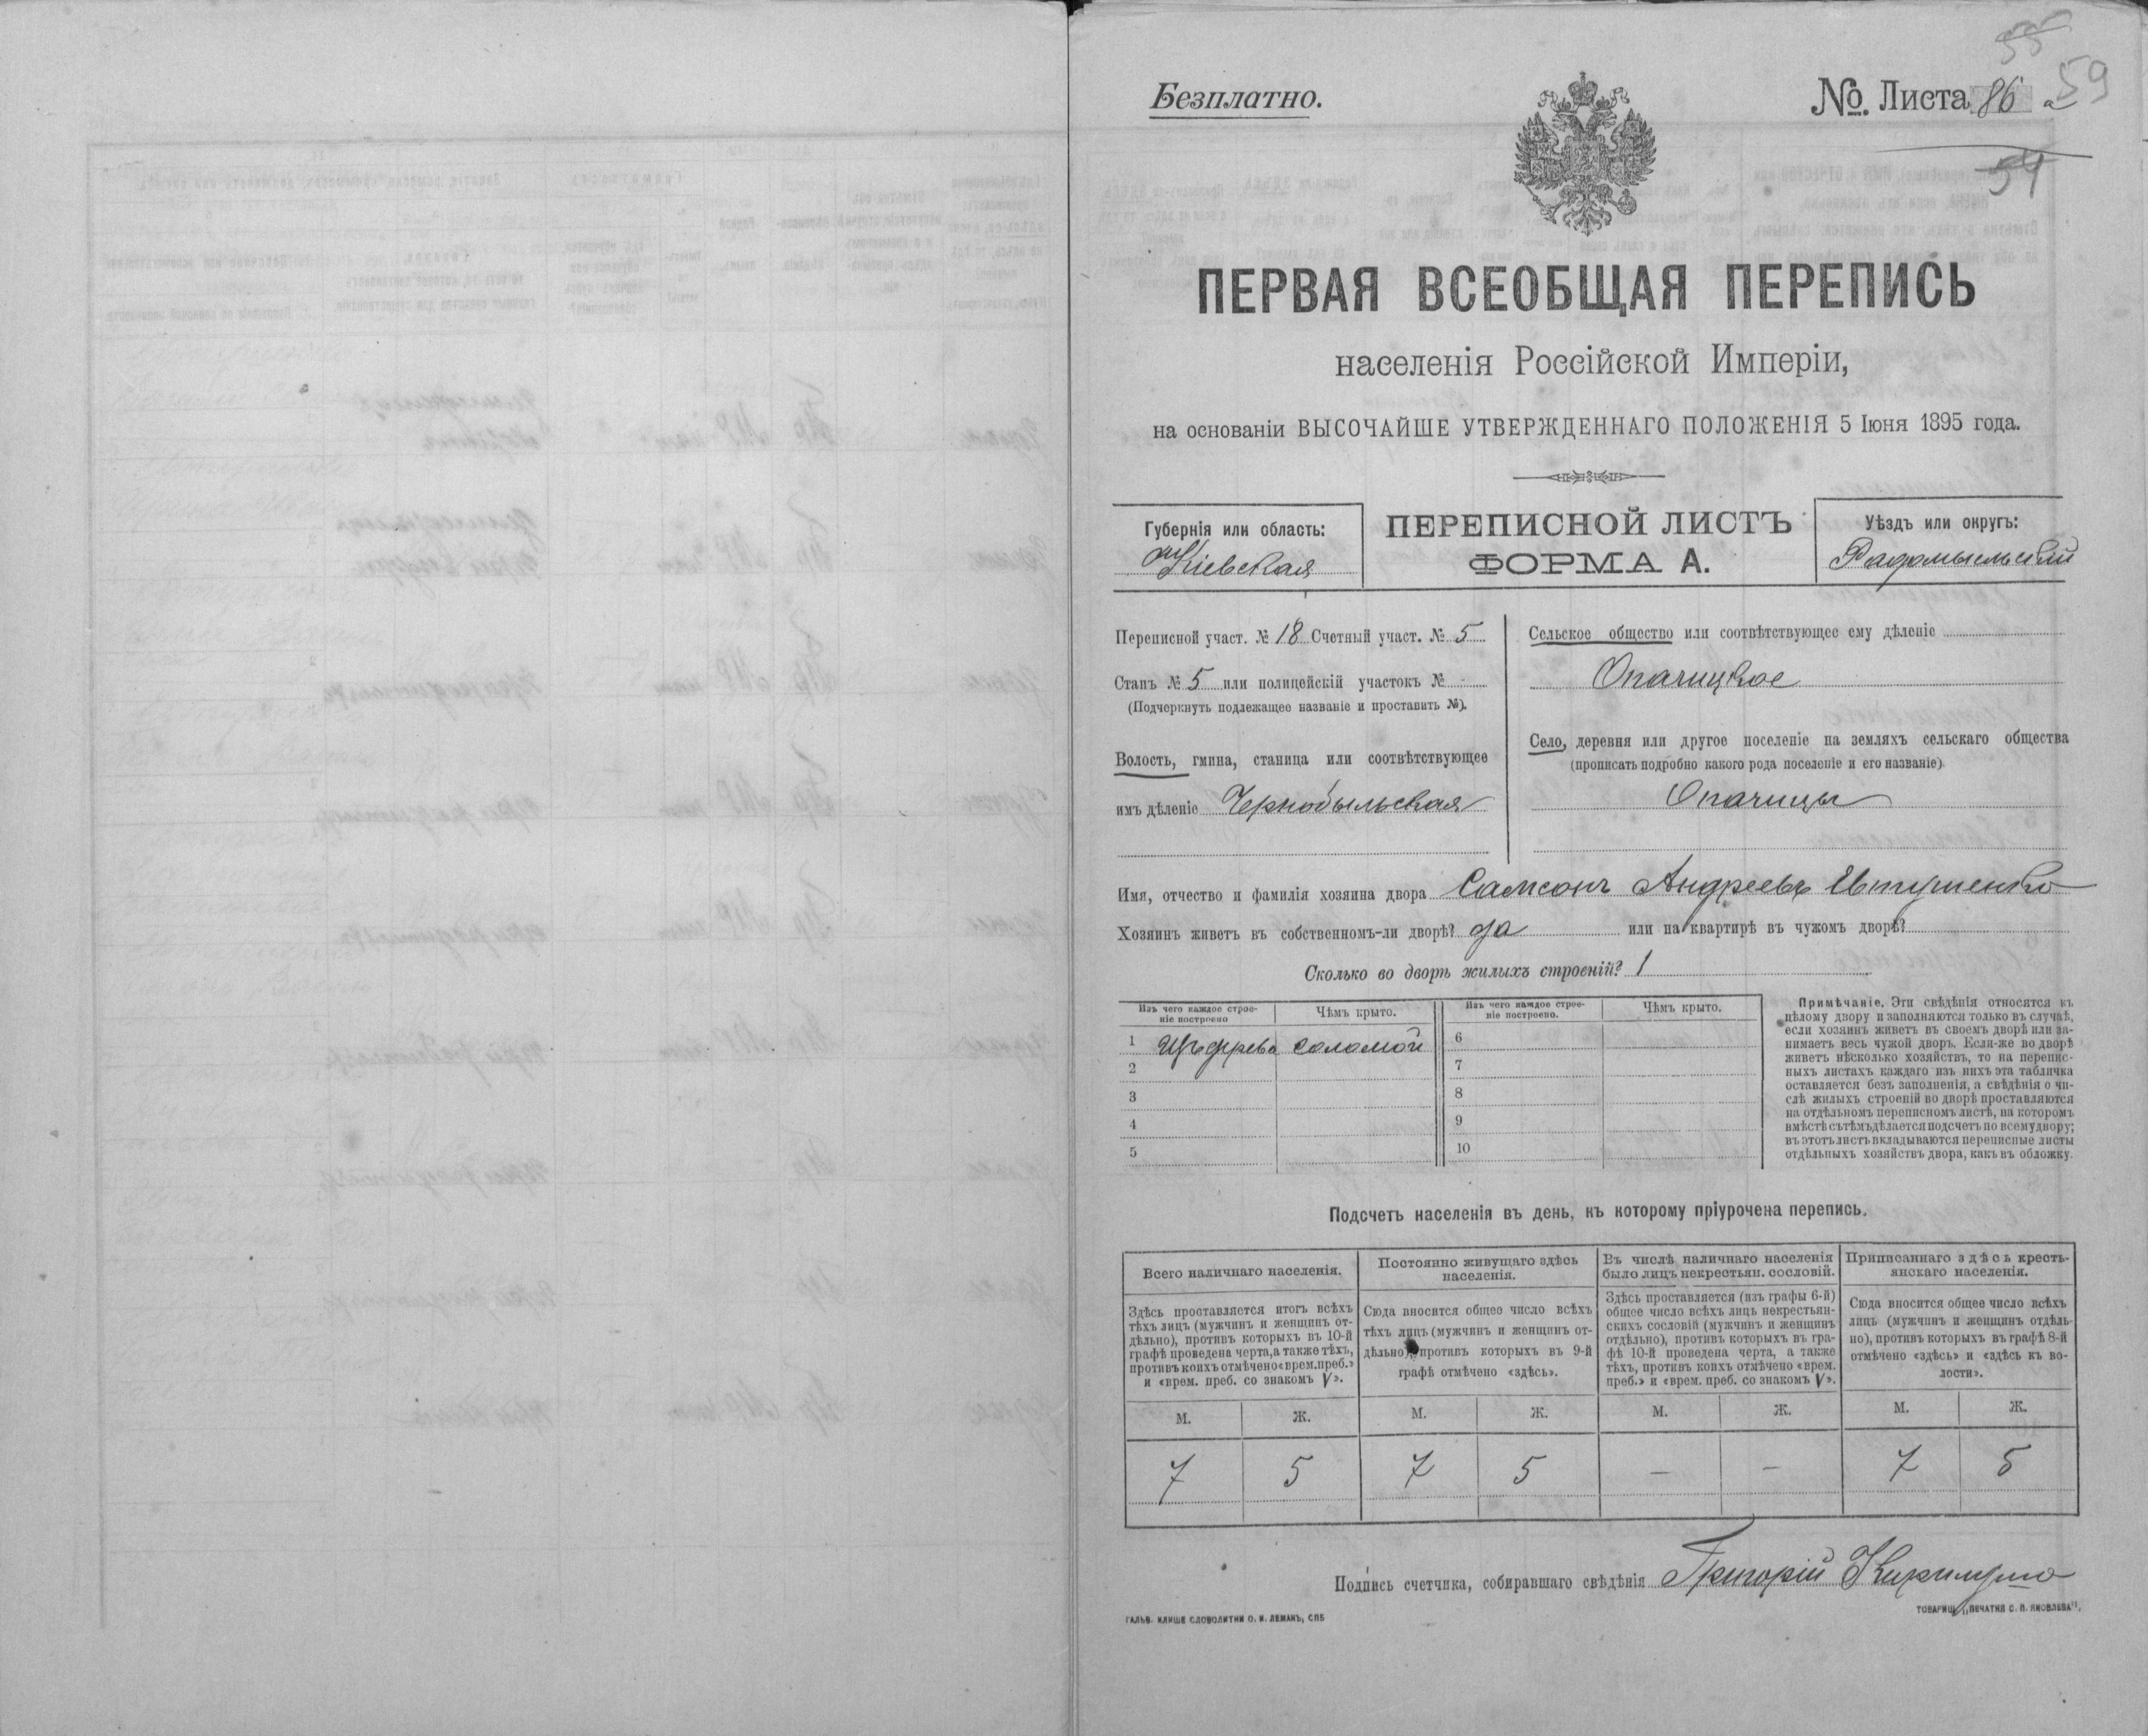 55
Безплатно.
№. Листа 86 а 59
54
ПЕРВАЯ ВСЕОБЩАЯ ПЕРЕПИСЬ
населенія Россійской Имперіи,
на основаніи ВЫСОЧАЙШЕ УТВЕРЖДЕННАГО ПОЛОЖЕНІЯ 5 Іюня 1895 года.
Губернія или область:
Кіевская
ПЕРЕПИСНОЙ ЛИСТЪ
ФОРМА А.
Уѣздъ или округъ:
Радомысльскій
Переписной участ. № 18 Счетный участ. № 5
Станъ № 5 или полицейскій участокъ № -
(Подчеркнуть подлежащее названіе и проставить №).
Волость, гмина, станица или соотвѣтствующее
имъ дѣленіе Чернобыльская
Сельское общество или соотвѣтствующее ему дѣленіе
Опачицкое
Село, деревня или другое поселеніе на земляхъ сельскаго общества
(прописать подробно какого рода поселеніе и его названіе)
Опачицы
Имя, отчество и фамилія хозяина двора Самсонъ Андреевъ Евтушенко
Хозяинъ живетъ въ собственномъ-ли дворѣ? да или на квартирѣ въ чужомъ дворѣ?
Сколько во дворѣ жилыхъ строеній? 1
Изъ чего каждое строе-
ніе построено
Чѣмъ крыто.
Изъ чего каждое строе-
ніе построено.
Чѣмъ крыто.
1 Изъ дерева соломой
2
3
4
5
6
7
8
9
10
Примѣчаніе. Эти свѣдѣнія относятся къ
цѣлому двору и заполняются только въ случаѣ,
если хозяинъ живетъ въ своемъ дворѣ или за-
нимаетъ весь чужой дворъ. Если-же во дворѣ
живетъ нѣсколько хозяйствъ, то на перепис-
ныхъ листахъ каждаго изъ нихъ эта табличка
оставляется безъ заполненія, а свѣдѣнія о чи-
слѣ жилыхъ строеній во дворѣ проставляются
на отдѣльномъ переписномъ листѣ, на которомъ
вмѣстѣ съ тѣмъ дѣлается подсчетъ по всему двору;
въ этотъ листъ вкладываются переписные листы
отдѣльныхъ хозяйствъ двора, какъ въ обложку.
Подсчетъ населенія въ день, къ которому пріурочена перепись.
Всего наличнаго населенія.
Здѣсь проставляется итогъ всѣхъ
тѣхъ лицъ (мужчинъ и женщинъ от-
дѣльно), противъ которыхъ въ 10-й
графѣ проведена черта, а также тѣхъ,
противъ коихъ отмѣчено «врем. преб.»
и «врем. преб. со знакомъ V».
Постоянно живущаго здѣсь
населенія.
Сюда вносится общее число всѣхъ
тѣхъ лицъ (мужчинъ и женщинъ от-
дѣльно), противъ которыхъ въ 9-й
графѣ отмѣчено «здѣсь».
Въ числѣ наличнаго населенія
было лицъ некрестьян. сословій.
Здѣсь проставляется (изъ графы 6-й)
общее число всѣхъ лицъ некрестьян-
скихъ сословій (мужчинъ и женщинъ
отдѣльно), противъ которыхъ въ гра-
фѣ 10-й проведена черта, а также
тѣхъ, противъ коихъ отмѣчено «врем.
преб.» и «врем. преб. со знакомъ V».
Приписаннаго здѣсь кресть-
янскаго населенія.
Сюда вносится общее число всѣхъ
лицъ (мужчинъ и женщинъ отдѣль-
но), противъ которыхъ въ графѣ 8-й
отмѣчено «здѣсь» и «здѣсь къ во-
лости».
М. Ж. М. Ж. М. Ж. М. Ж.
7 5 7 5 — — 7 5
Подпись счетчика, собиравшаго свѣдѣнія Григорій
ГАЛЬВ. КЛИШЕ СЛОВОЛИТНИ О. И. ЛЕМАНЪ, СПБ
ТОВАРИЩ. „ПЕЧАТНЯ С. П. ЯКОВЛЕВА".